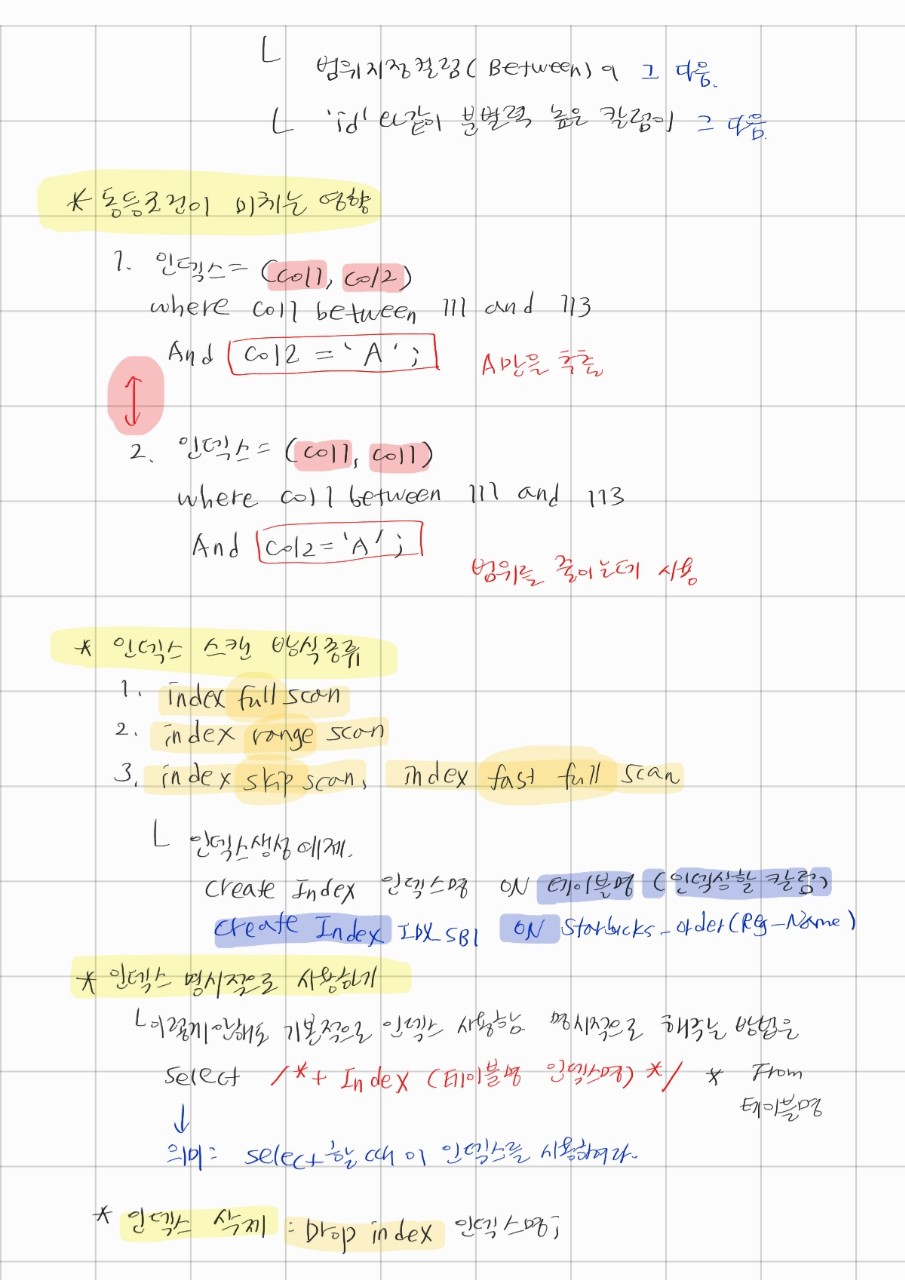 └ 범위지정컬럼(Between)이 그 다음.
└ 'id'와같이 분별력 높은 칼럼이 그 다음.
* 동등조건이 미치는 영향
1. 인덱스= (col1, col2)
where col1 between 111 and 113
And col2 = 'A';
A만을 추출
↕
2. 인덱스= (col1, col1)
where col1 between 111 and 113
And col2='A';
범위를 줄이는데 사용
* 인덱스 스캔 방식종류
1. index full scan
2. index range scan
3. index skip scan, index fast full scan
└ 인덱스생성 예제.
Create Index 인덱스명 ON 테이블명 (인덱싱할 칼럼)
Create Index IDX_SB1 ON Starbucks_order(Reg_Name)
* 인덱스 명시적으로 사용하기
└이렇게안해도 기본적으로 인덱스 사용함 명시적으로 해주는 방법은
select /*+ Index (테이블명 인덱스명) */ * From
테이블명
↓
의미: select할 때 이 인덱스를 사용하여라.
* 인덱스 삭제 : Drop index 인덱스명;